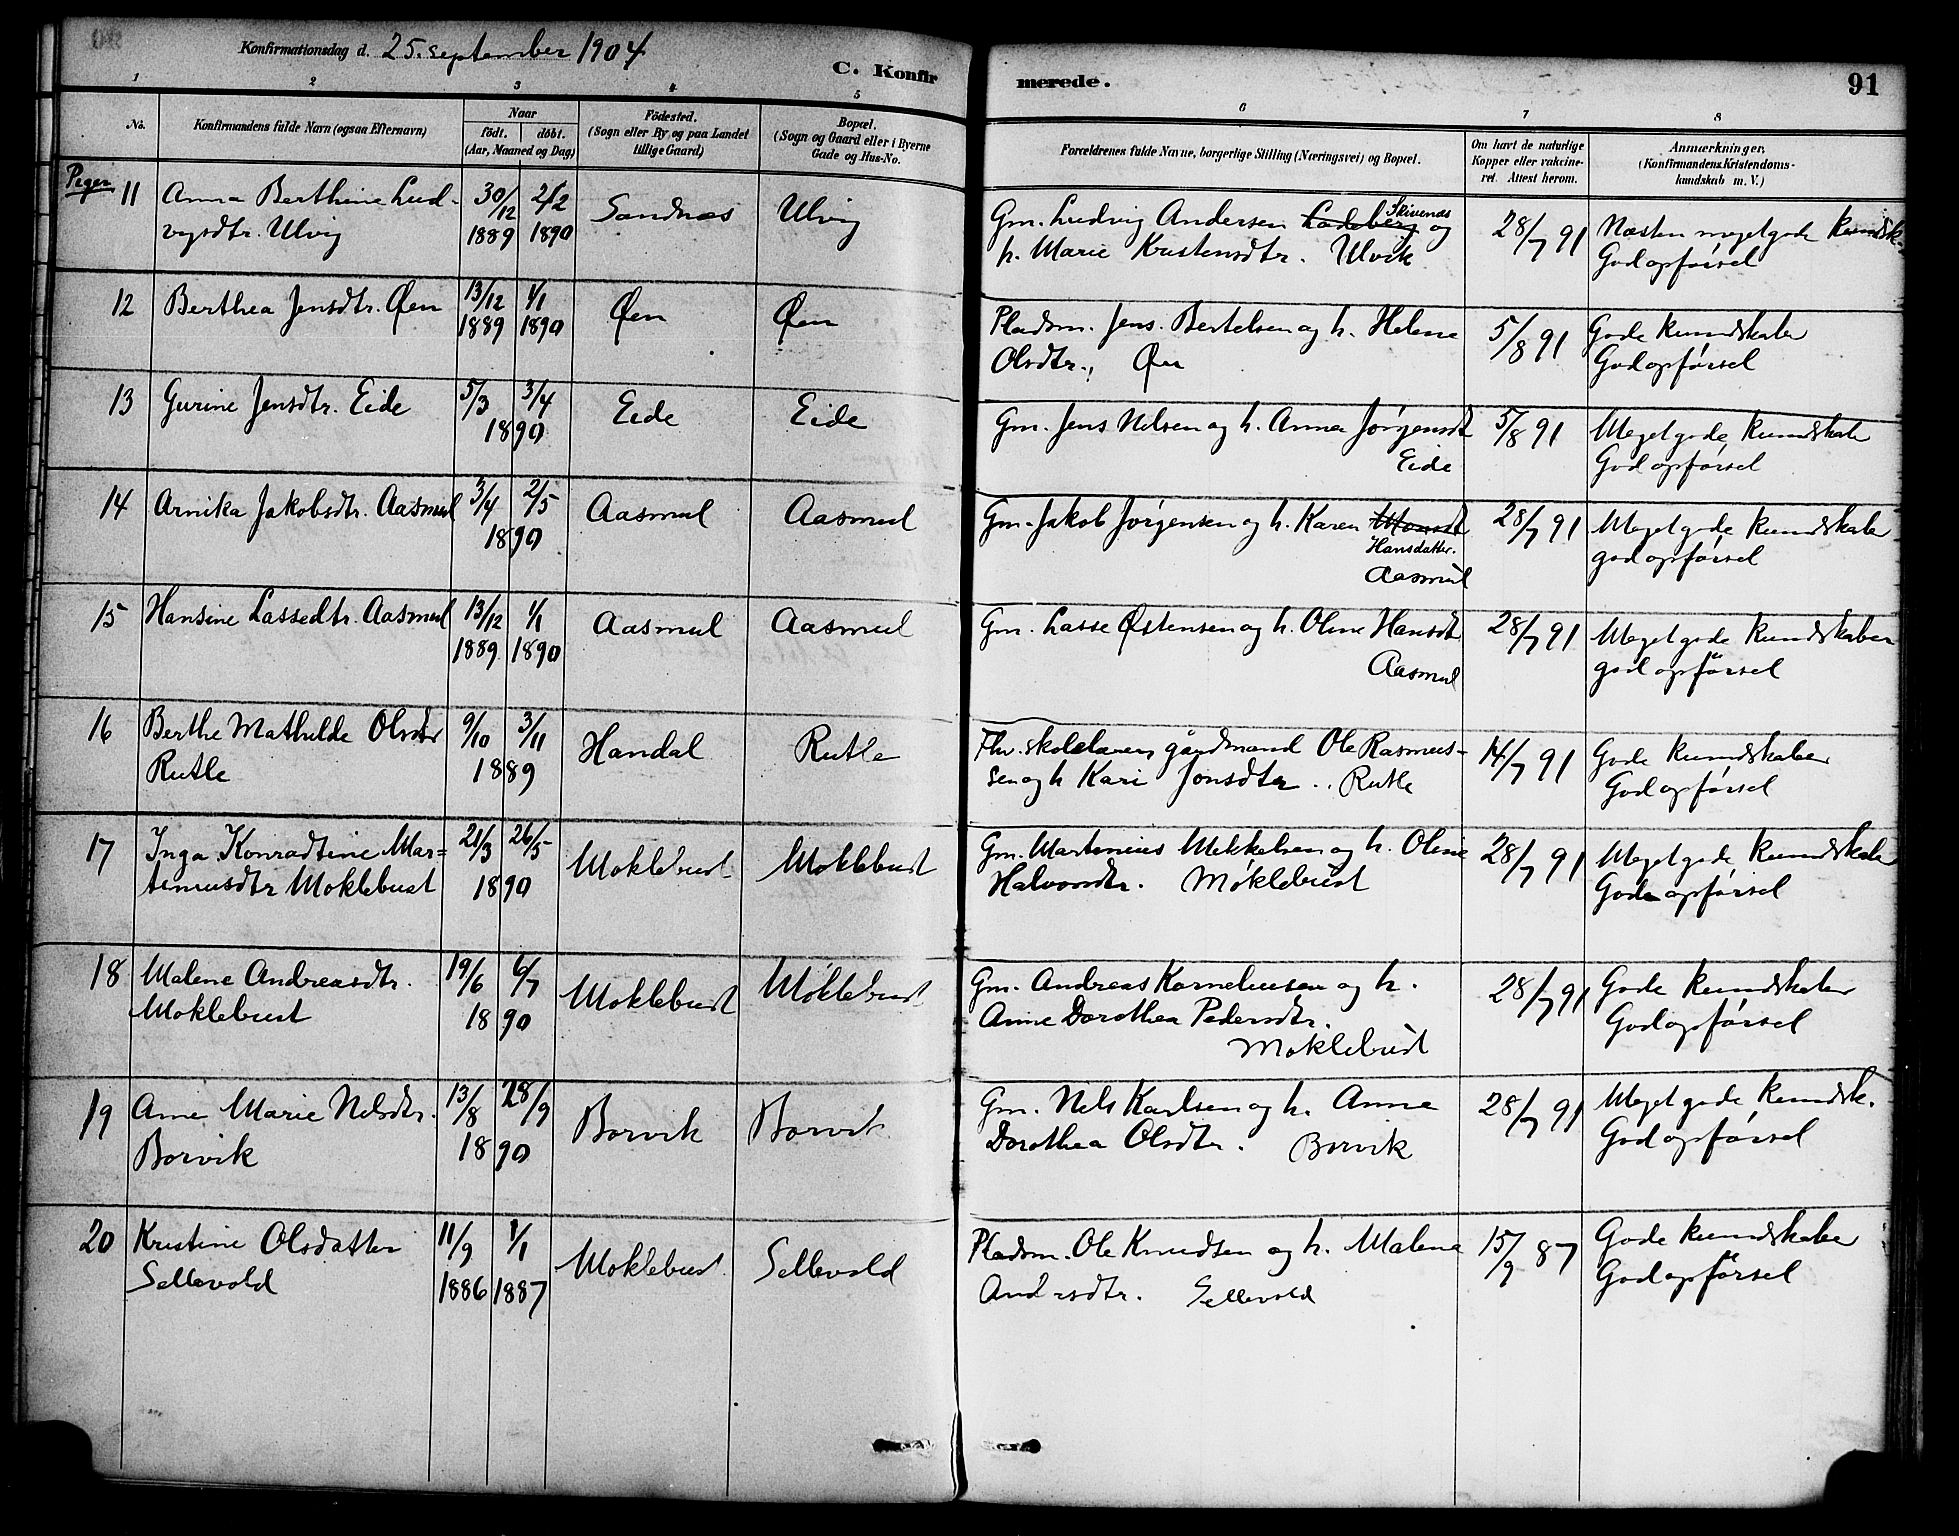 Konfirmationsdag d. 25. september 1904
C. Konfirmerede.
91
1 2 3 4 5 6 7 8
No.
Konfirmandens fulde Navn (ogsaa Efternavn)
Naar
födt. döbt.
(Aar, Maaned og Dag)
Födested.
(Sogn eller By og paa Landet
tillige Gaard)
Bopæl.
(Sogn og Gaard eller i Byerne
Gade og Hus-No.
Forældrenes fulde Navne, borgerlige Stilling (Næringsvei) og Bopæl.
Om havt de naturlige
Kopper eller vakcine-
ret. Attest herom.
Anmærkninger.
(Konfirmandens Kristendoms-
kundskab m. V.)
Piger
11 Anna Berthine Lud-
vigsdtr. Ulvig
30/12 1889 2/2 1890 Sandnes Ulvig
Gm. Ludvig Andersen Ladeberg Skivenes og
h. Marie Kristensdtr. Ulvik
28/7 91 Næsten meget gode kundsk.
God opførsel
12 Berthea Jensdtr. Øen
13/12 1889 1/1 1890 Øen Øen
Pladsm. Jens Bertelsen og h. Helene
Olsdtr., Øen
5/8 91 Gode kundskaber
God opførsel
13 Gurine Jensdtr. Eide
5/3 3/4 1890 Eide Eide
Gm. Jens Nilsen og h. Anna Jørgensdt
Eide
5/8 91 Meget gode kundskaber
God opførsel
14 Arnika Jakobsdtr. Aasmul
3/4 2/5 1890 Aasmul Aasmul
Gm. Jakob Jørgensen og h. Karen
Hansdatter.
Aasmul
28/7 91 Meget gode kundskaber
god opførsel
15 Hansine Lassedtr. Aasmul
13/12 1889. 1/1 1890 Aasmul Aasmul
Gm. Lasse Østensen og h. Oline Hansdt
Aasmul
28/7 91 Meget gode kundskaber
god opførsel
16 Berthe Mathilde Olsdtr
Rutle
9/10 3/11 1889 Handal Rutle
Fhv. skolelærer, gårdmand Ole Rasmus-
sen og h Kari Jonsdtr.. Rutle
14/7 91 Gode kundskaber
God opførsel
17 Inga Konradtine Mar=
tinusdtr Moklebust
21/3 26/5 1890 Moklebust Moklebust
Gm. Martinius Mikkelsen og h. Oline
Halvorsdtr. Møklebust
28/7 91 Meget gode kundskaber
God opførsel
18 Malene Andreasdtr.
Moklebust
19/6 6/7 1890 Moklebust Møklebust
Gm. Andreas Korneliussen og h.
Anne Dorothea Pedersdtr.
Moklebust
28/7 91 Gode kundskaber
God opførsel
19 Ane Marie Nilsdtr.
Borvik
13/8 28/9 1890 Borvik Borvik
Gm. Nils Karlsen og h. Anne
Dorothea Olsdtr. Borvik
28/7 91 Meget gode kundsk.
God opførsel
20 Kristine Olsdatter
Sellevold
11/9 1886 1/1 1887 Moklebust Sellevold
Pladsm. Ole Knudsen og h. Malene
Andrsdtr. Sellevold
15/9 87 Gode kundskaber
God opførsel